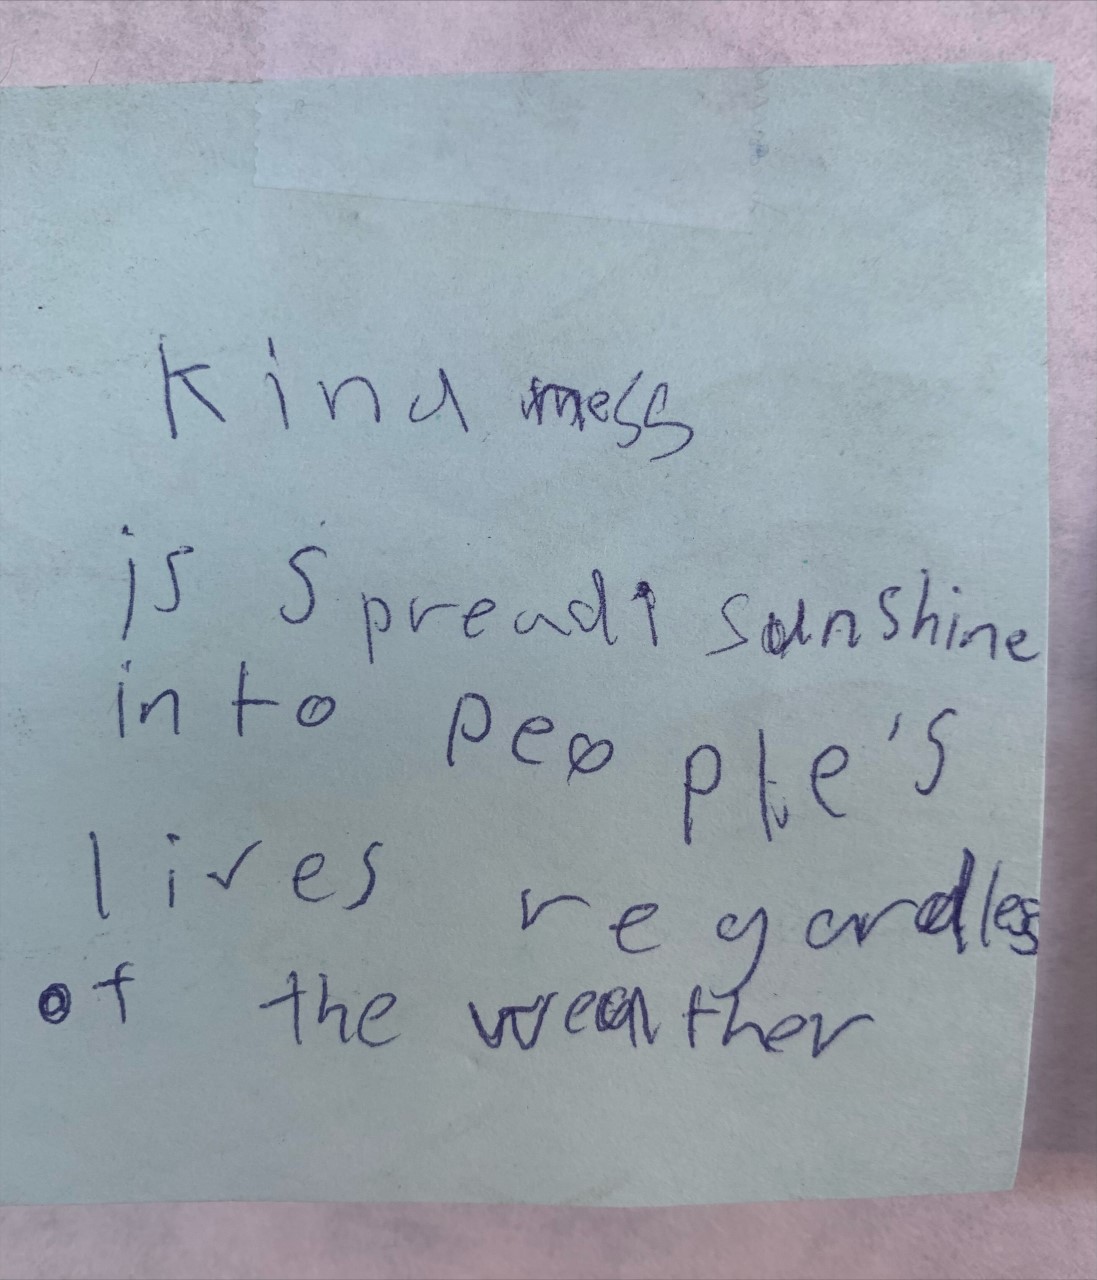 Kindness
is spreadi sunshine
into people's
lives regardless
of the weather